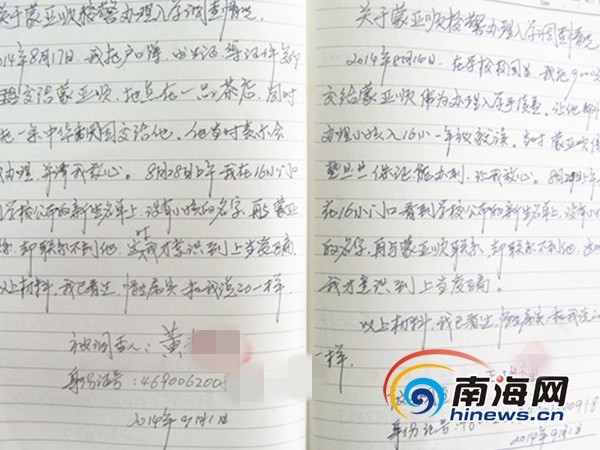 关于蒙亚顺校警办理入学调查情况
2014年8月17日,我把户口簿、出生证等证件复印
交给蒙亚顺,地点在一品茶店,同时
把一条中华烟同交给他,他当时表示会
办理,并请我放心。8月28日上午我在16小门口
学校公布的新生名单上,没有小孩的名字,再与蒙亚
联系,却联系不到他,这时我才意识到上当受骗。
以上材料,我已看过,情况属实和我说的一样
被调查人:黄
身份证号:469006200
2014年9月1日
关于蒙亚顺校警办理入学调查情况
2014年8月16日,在学校校园里,我把9000
交给蒙亚顺作为办理入学手续费,让他帮
办理小孩入16小一年级就读。当时蒙亚顺信
誓旦旦保证能办到,让我放心。8月28日上午
在16小门口看到学校公布的新生名单上,没有小
的名字,再与蒙亚顺联系,却联系不到他,
我才意识到上当受骗。
以上材料,我已看过,情况属实和我说
一样.
身份证号:
0918
2014年9月1日
南海网
hinews.cn